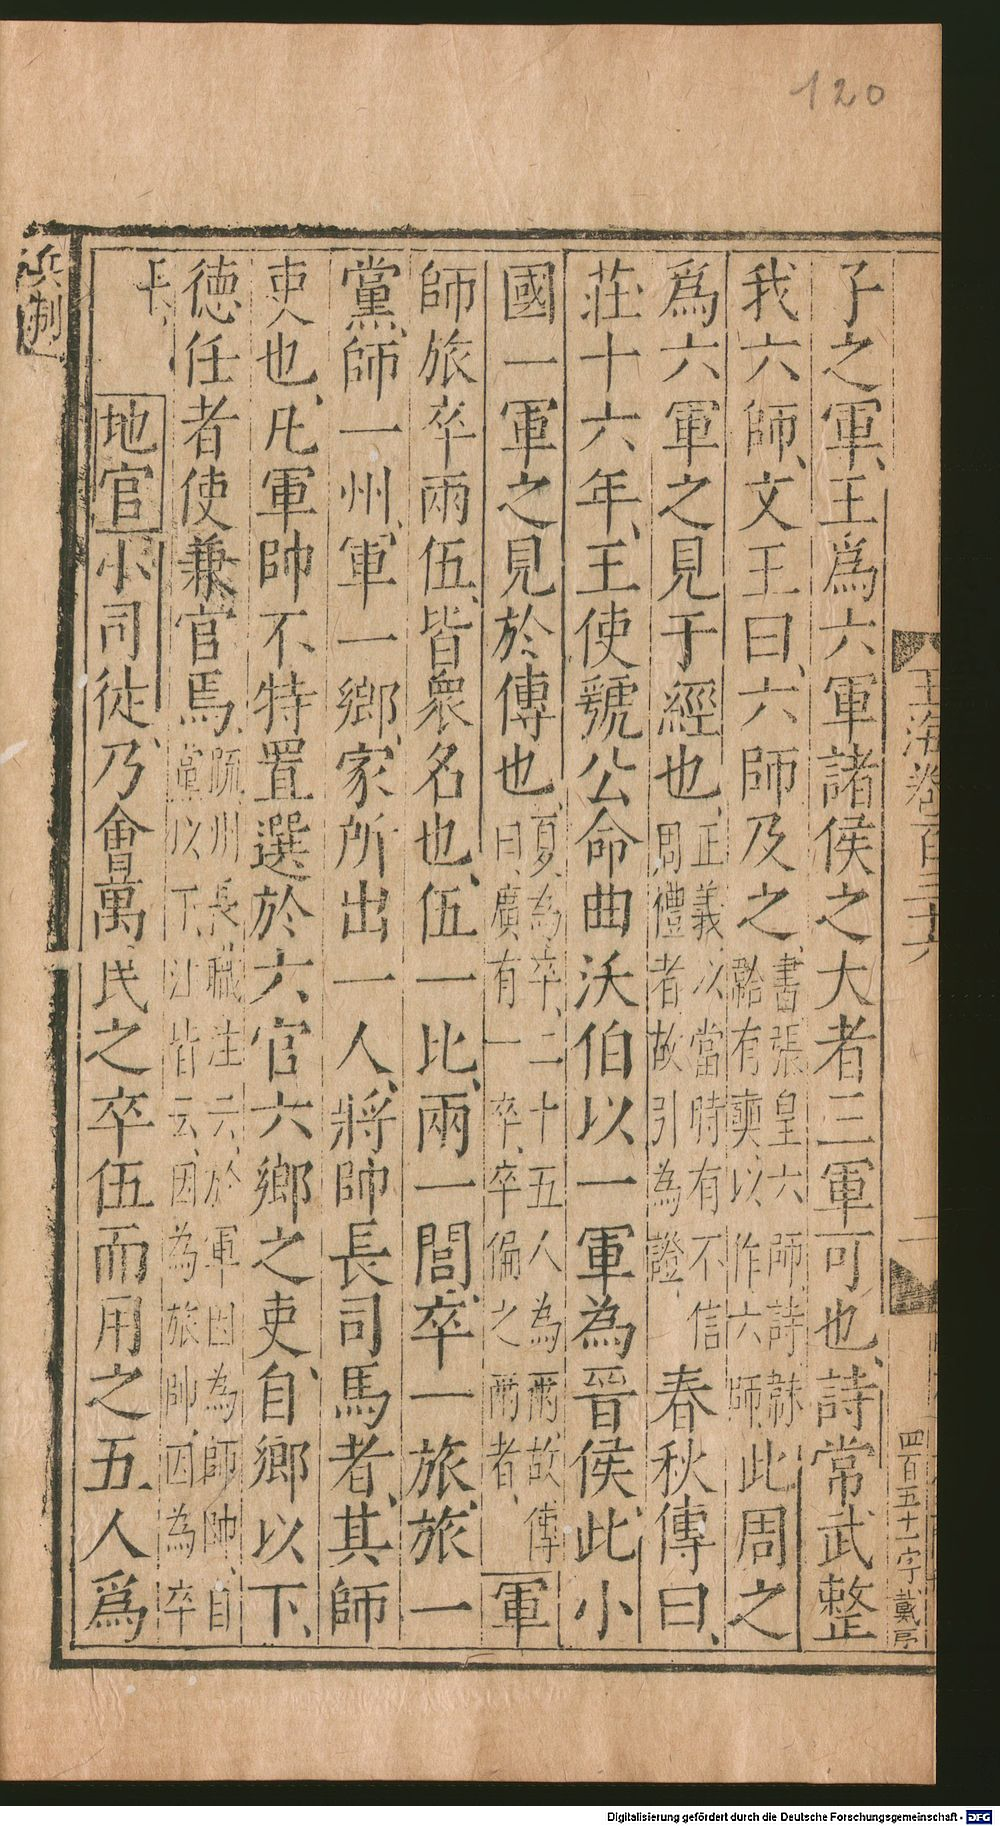 120
玉海卷百三十六
二
四百五十一字
子之軍王爲六軍諸侯之大者三軍可也詩常武整
我六師文王曰六師及之書張皇六師詩韎韐有奭以作六師此周之
爲六軍之見于經也正義以當時有不信周禮者故引為證春秋傳曰
莊十六年王使虢公命曲沃伯以一軍為晉侯此小
國一軍之見於傳也夏為卒二十五人為兩故傳曰廣有一卒卒偏之兩者軍
師旅卒兩伍皆衆名也伍一比兩一閭卒一旅旅一
黨師一州軍一鄉家所出一人將帥長司馬者其師
吏也凡軍帥不特置選於六官六鄉之吏自鄉以下
德任者使兼官焉疏州長職注云於軍因為師帥自黨以下注皆云因為旅帥因為卒
長
地官小司徒乃會萬民之卒伍而用之五人爲
兵制
Digitalisierung gefördert durch die Deutsche Forschungsgemeinschaft - DFG